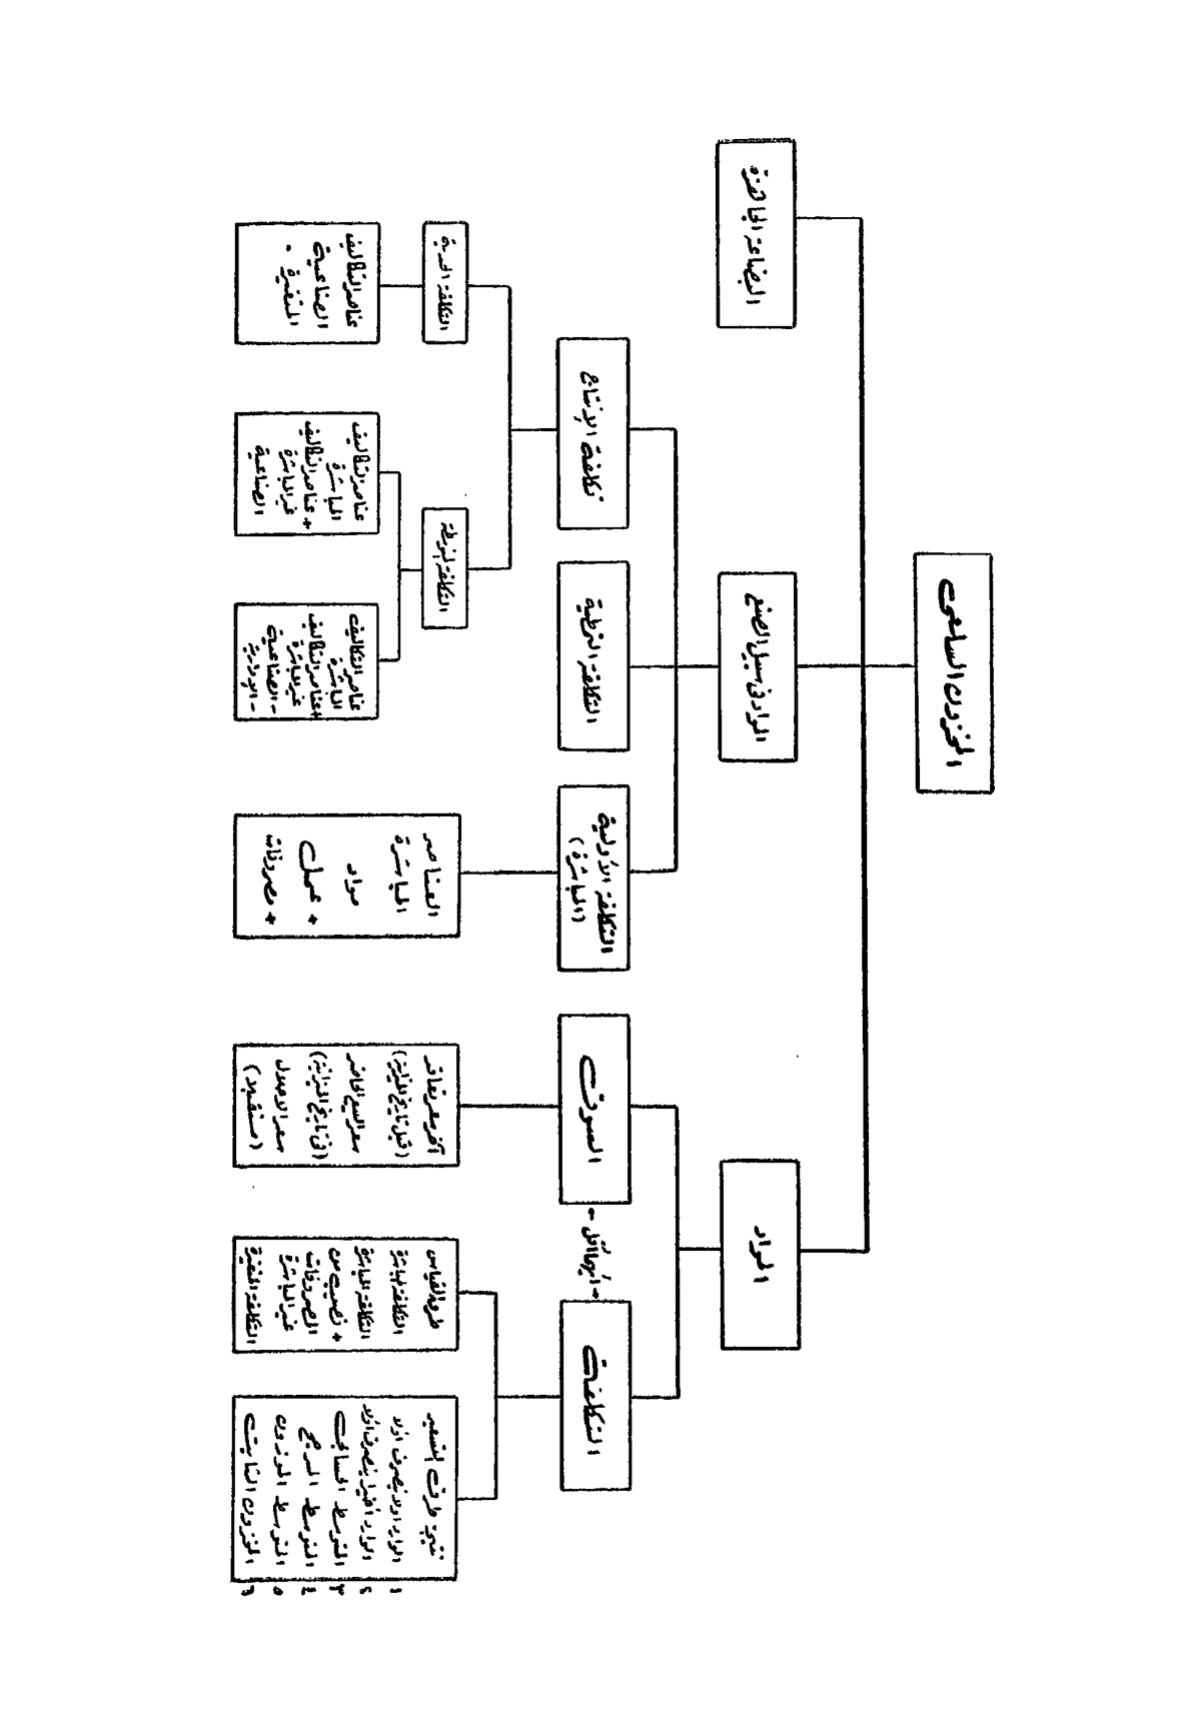 المخزون السلعى
المواد
المواد فى سبيل الصنع
البضاعة الجاهزة
التكلفة
- أيهما أقل -
السوق
التكلفة الأولية
(المباشرة)
التكلفة النمطية
تكلفة الإنتاج
نتيجة طرق التسعير
١ الوارد اولا يصرف اولا
٢ الوارد أخيرا ينصرف اولا
٣ المتوسط الحسابى
٤ المتوسط المرجح
٥ المتوسط الموزون
٦ المخزون الثابت
طرق القياس
التكلفة المباشرة
التكلفة المباشرة
+ نصيب من
المصروفات
غير المباشرة
التكلفة المتغيرة
آخر سعر تعاقد
(قبل تاريخ الميزانية)
سعر البيع الحاضر
(فى تاريخ الميزانية)
سعر الاحلال
(مستقبلا)
العناصر
المباشرة
مواد
+ عمل
+ مصروفات
التكلفة
عناصر التكاليف
المباشرة
+ عناصر التكاليف
غير المباشرة
- الصناعية
- الإدارية
عناصر التكاليف
المباشرة
+ عناصر التكاليف
غير المباشرة
الصناعية
التكلفة
عناصر التكاليف
الصناعية
المتغيرة .